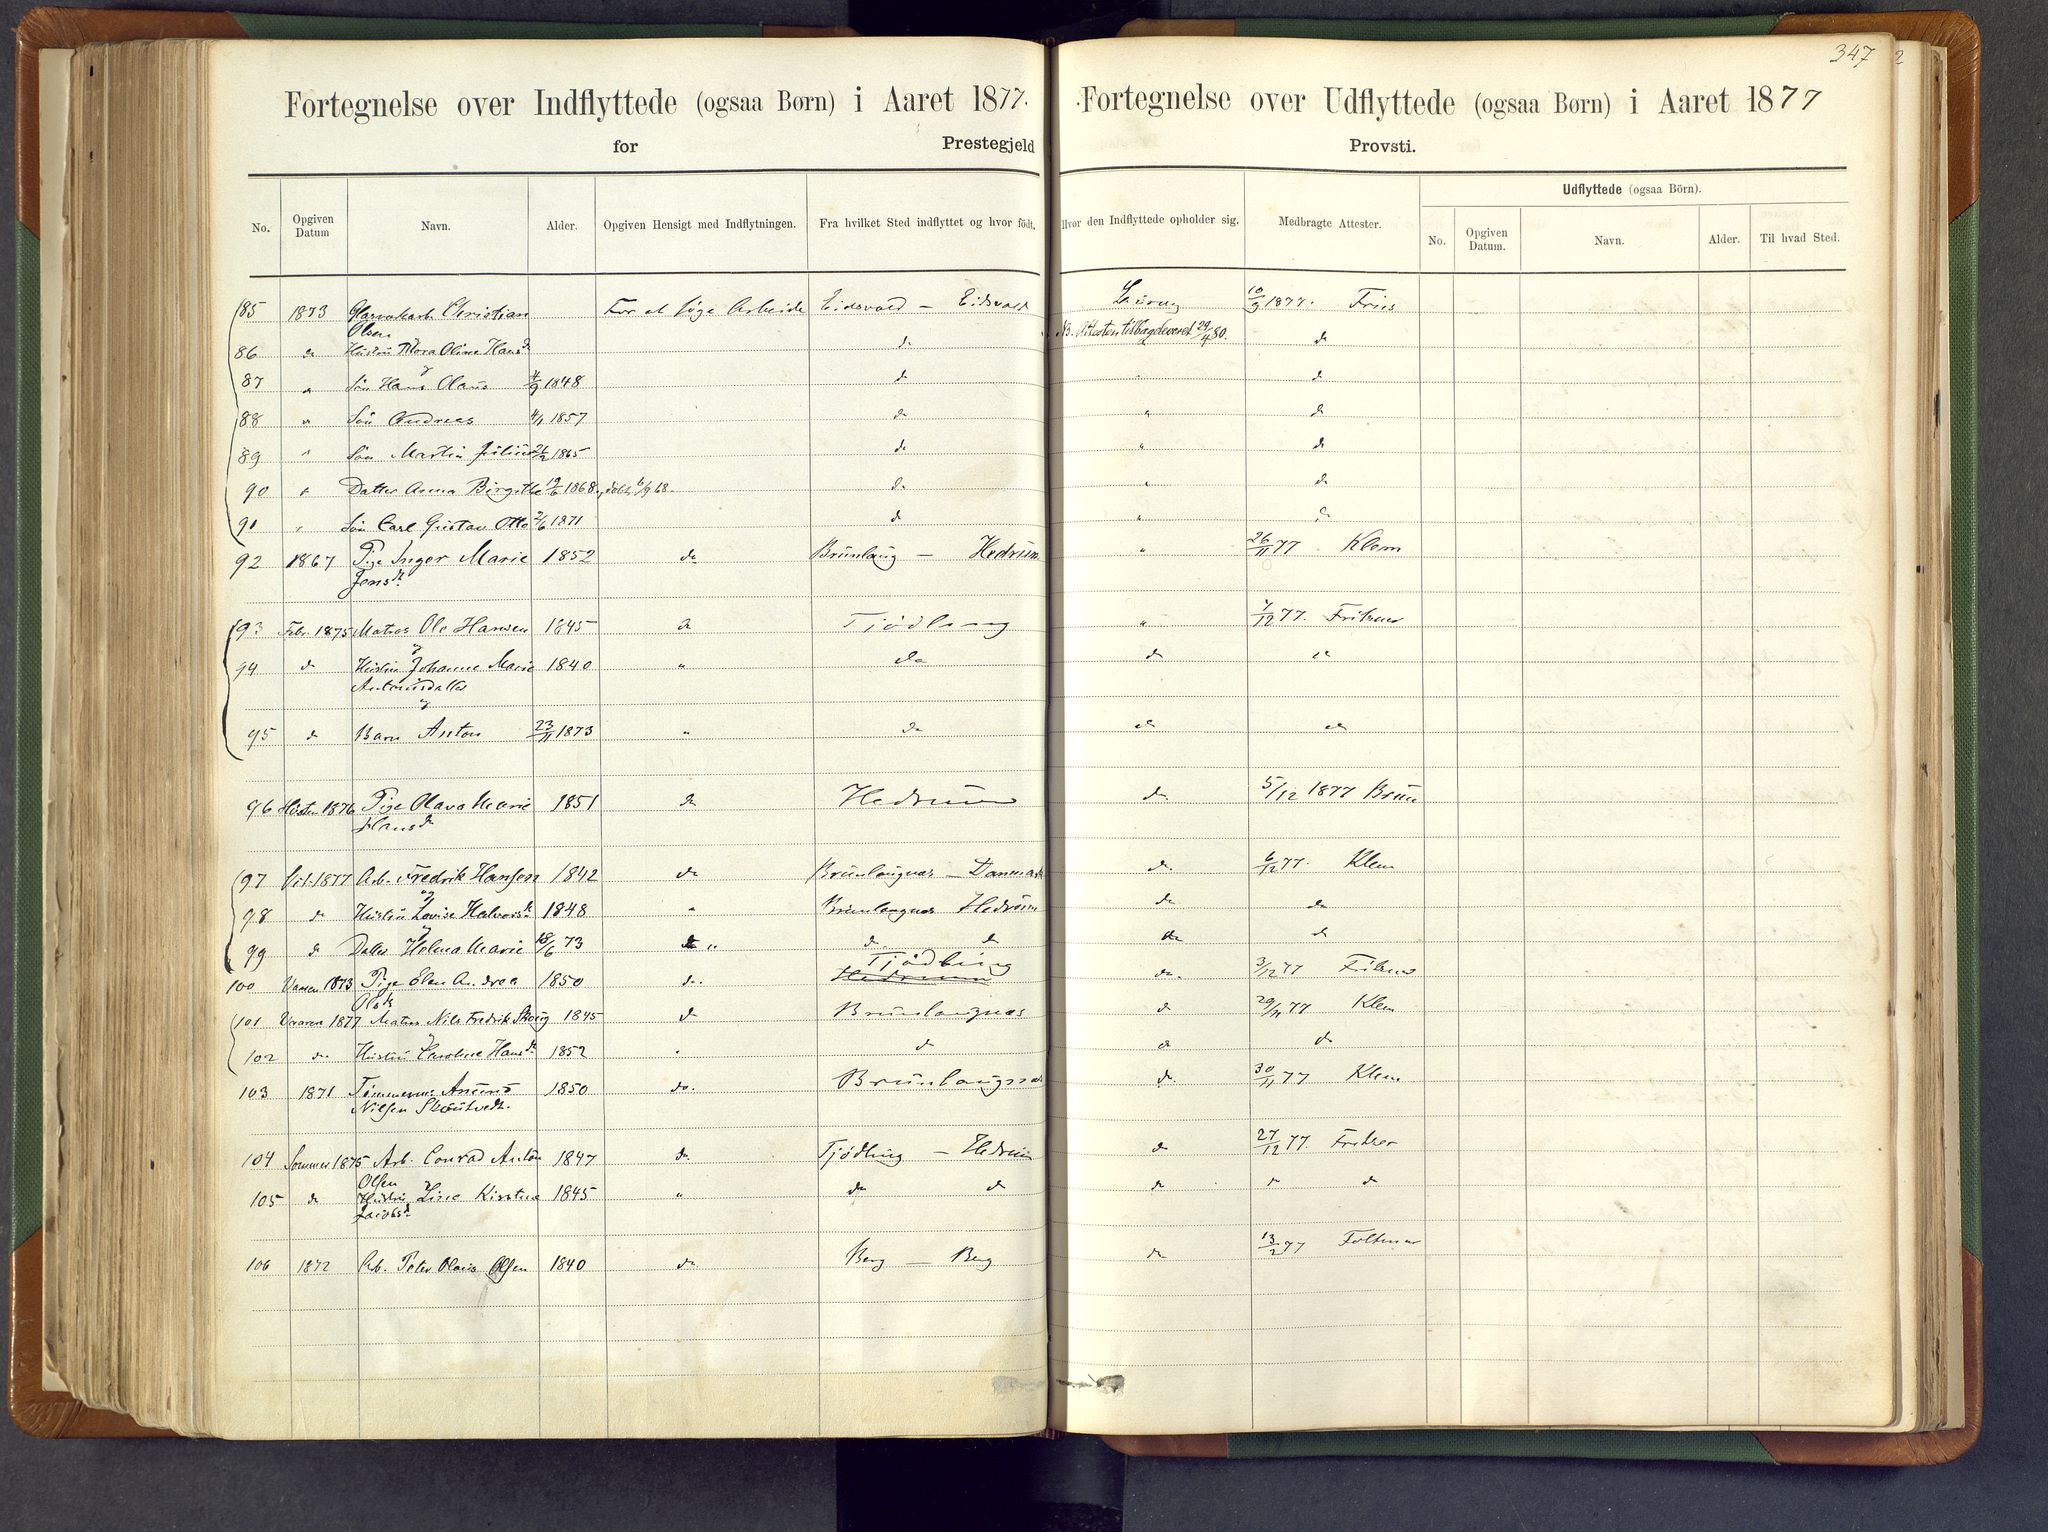 347
2
Fortegnelse over Indflyttede (ogsaa Børn) i Aaret 1877.
for Prestegjeld
Fortegnelse over Udflyttede (ogsaa Børn) i Aaret 1877
Provsti.
No. Opgiven Datum Navn. Alder. Opgiven Hensigt med Indflytningen. Fra hvilket Sted indflyttet og hvor födt. Hvor den Indflyttede opholder sig. Medbragte Attester.
Udflyttede (ogsaa Börn).
No. Opgiven Datum. Navn. Alder. Til hvad Sted.
85 1873 Christian For at söge Arbeide Eidsvold — Eidsvold Laurvig 10/9 1877. Fries
Olsen NB. Attesten tilbagdeveret 29/4 80.
86 do Hustru Oline Hansd. do " do
87 " Sön Hans Olaus 4/9 1848 do " do
88 " Sön Andreas 4/1 1857 do " do
89 " Sön Martin Julius 26/2 1865 do " do
90 " Datter Anna Birgitte 19/6 1868, döbt 6/9 68. do " do
91 " Sön Carl Gustav Otto 2/6 1871 do " do
92 1867 Pige Inger Marie 1852 do Brunlaug — Hedrum " 26/11 77. Klem
Jensd.
93 Febr. 1875 Matros Ole Hansen 1845 do Tjödling " 7/12 77. Fritzner
94 do Hustru Johanne Marie 1840 " do do do
Antonsdatter
og
95 do Barn Anton 23/11 1873 " do do do
96 Hösten 1876 Pige Olava Marie 1851 do Hedrum do. 5/12 1877 Brun
Hansd.
97 1877 Arb. Fredrik Hansen 1842 do Brunlaugnæs — Danmark do. 6/12 77. Klem
98 do Hustru Lovise Halvorsd. 1848 " Brunlaugnæs Hedrum do do
99 do Datter Helena Marie 18/6 73 do " do do do do
100 Vaaren 1873 Pige Elen Andrea 1850 do. Tjödling Hedrum do. 3/12 77 Fritzner
Olsd.
101 Vaaren 1877 Matros Nils Fredrik Skoug 1845 do Brunlaugnæs do 29/11 77 Klem
102 do Hustru Caroline Hansd. 1852 " do do do
103 1871 Tömmerm. Amund 1850 do. Brunlaugnæs do. 30/11 77 Klem
Nilsen
104 Sommer 1875 Arb. Conrad Anton 1847 do Tjödling — Hedrum do 27/12 77. Fritzner
Olsen
105 do Hustru Line Kirstine 1845 " do do do " do
Jacobsd.
106 1872 Arb. Peter Olaus Olsen 1840 do Berg — Berg do 13/2 77